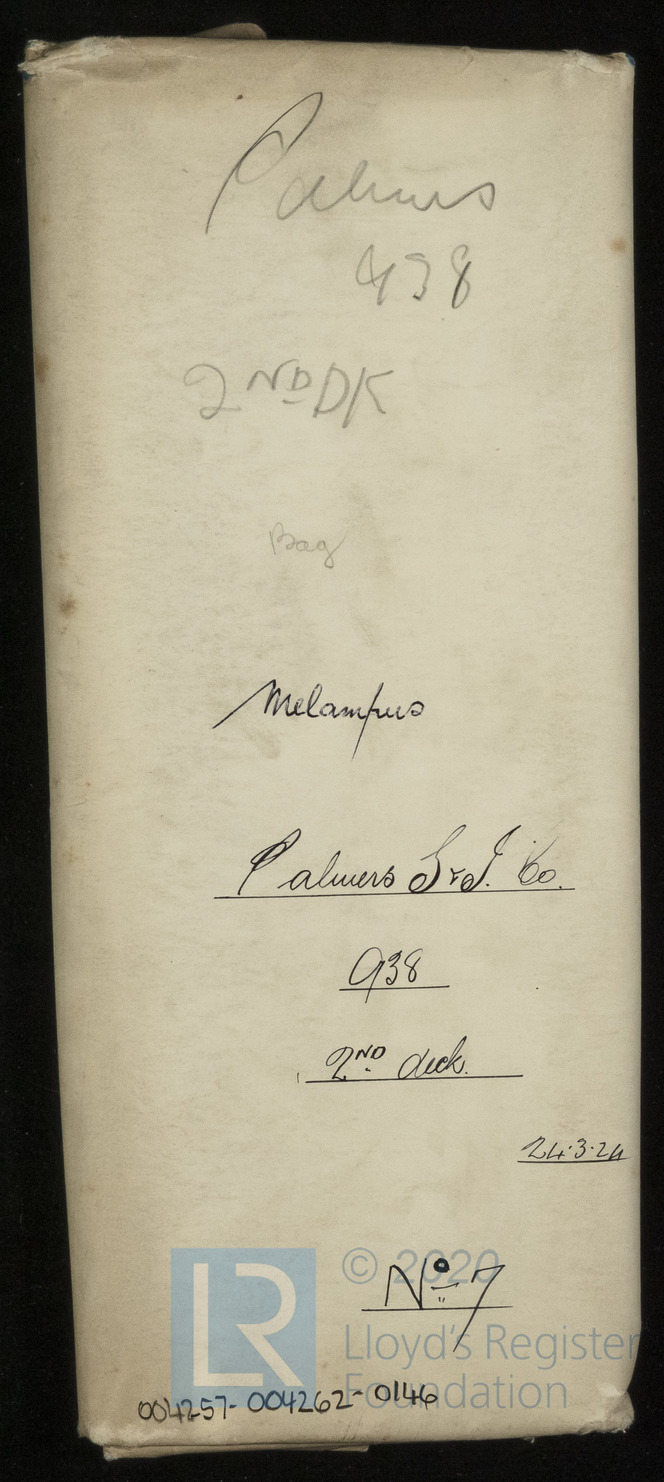 Palmers
938
2ND DK
Bag
Melampus
Palmers S & I. Co.
938
2ND deck.
24.3.24
No 7
LR
© 2020
Lloyd's Register
Foundation
004257-004262-0146